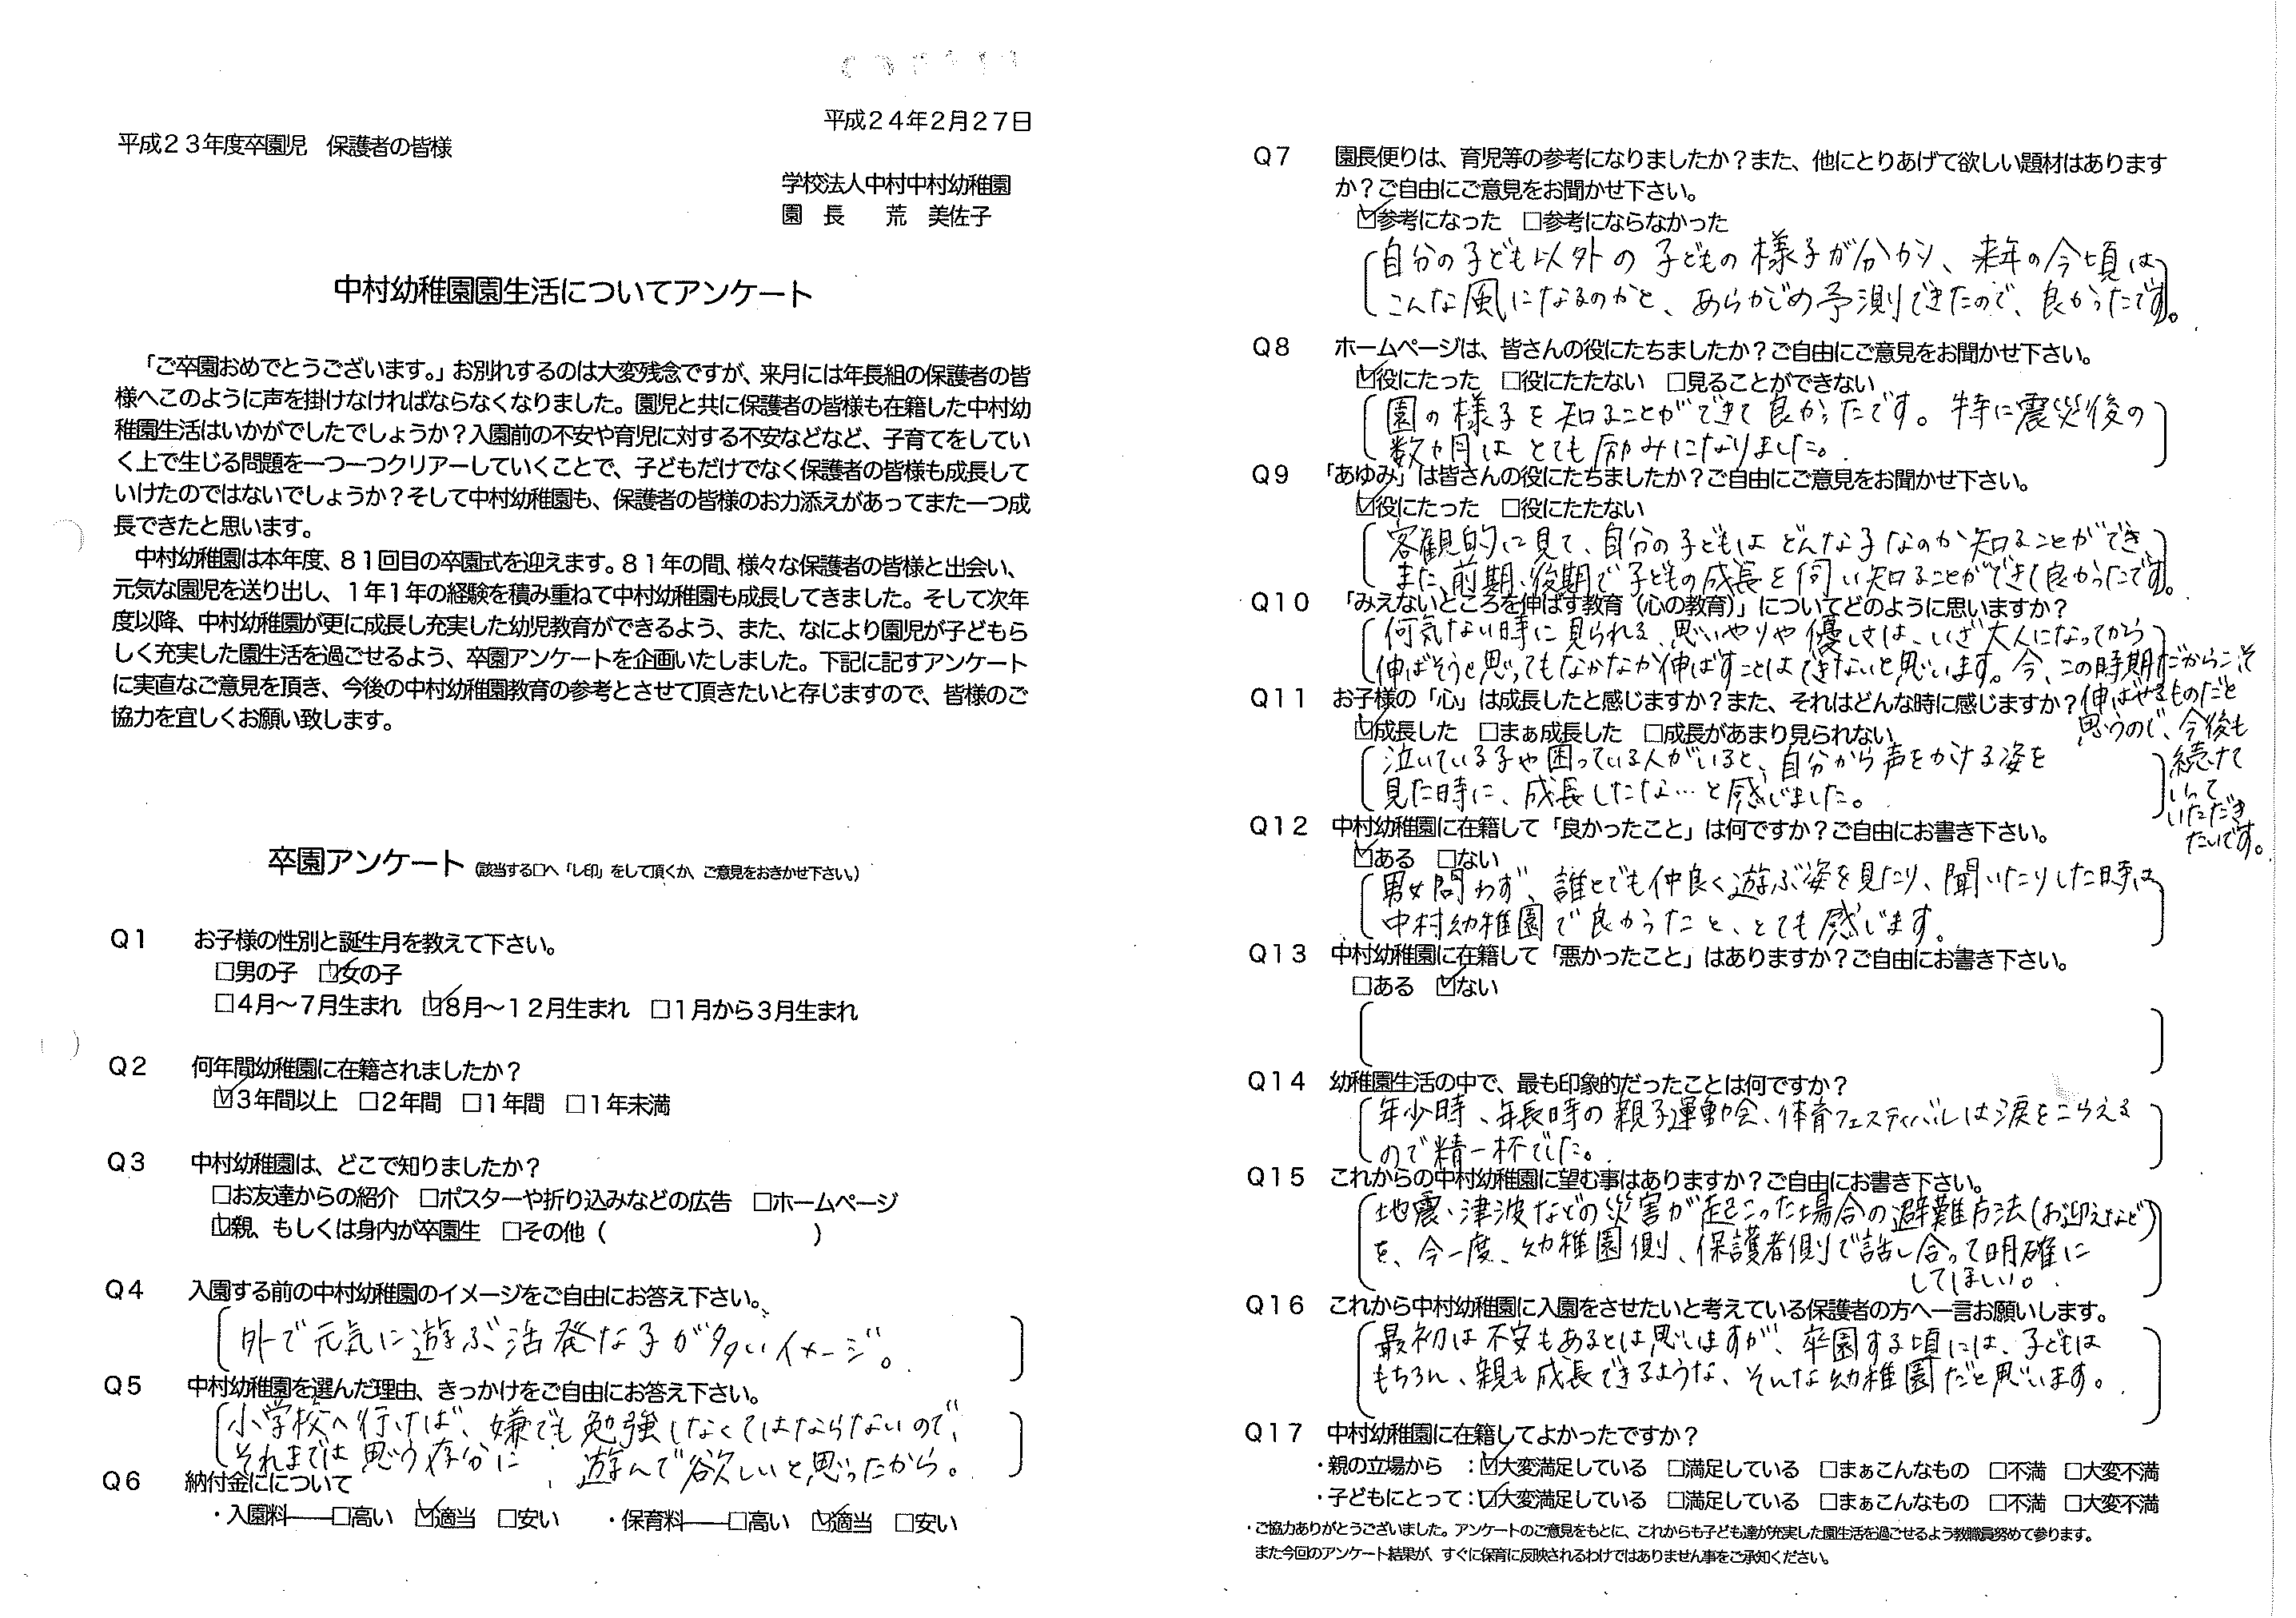 平成24年2月27日
平成23年度卒園児　保護者の皆様
学校法人中村中村幼稚園
園　長　　荒　美佐子
中村幼稚園園生活についてアンケート
「ご卒園おめでとうございます。」お別れするのは大変残念ですが、来月には年長組の保護者の皆
様へこのように声を掛けなければならなくなりました。園児と共に保護者の皆様も在籍した中村幼
稚園生活はいかがでしたでしょうか？入園前の不安や育児に対する不安などなど、子育てをしてい
く上で生じる問題を一つ一つクリアーしていくことで、子どもだけでなく保護者の皆様も成長して
いけたのではないでしょうか？そして中村幼稚園も、保護者の皆様のお力添えがあってまた一つ成
長できたと思います。
中村幼稚園は本年度、81回目の卒園式を迎えます。81年の間、様々な保護者の皆様と出会い、
元気な園児を送り出し、1年1年の経験を積み重ねて中村幼稚園も成長してきました。そして次年
度以降、中村幼稚園が更に成長し充実した幼児教育ができるよう、また、なにより園児が子どもら
しく充実した園生活を過ごせるよう、卒園アンケートを企画いたしました。下記に記すアンケート
に実直なご意見を頂き、今後の中村幼稚園教育の参考とさせて頂きたいと存じますので、皆様のご
協力を宜しくお願い致します。
卒園アンケート（該当する□へ「レ印」をして頂くか、ご意見をおきかせ下さい。）
Q1　お子様の性別と誕生月を教えて下さい。
□男の子　☑女の子
□4月～7月生まれ　☑8月～12月生まれ　□1月から3月生まれ
Q2　何年間幼稚園に在籍されましたか？
☑3年間以上　□2年間　□1年間　□1年未満
Q3　中村幼稚園は、どこで知りましたか？
□お友達からの紹介　□ポスターや折り込みなどの広告　□ホームページ
☑親、もしくは身内が卒園生　□その他（　　　　）
Q4　入園する前の中村幼稚園のイメージをご自由にお答え下さい。
外で元気に遊ぶ活発な子が多いイメージ。
Q5　中村幼稚園を選んだ理由、きっかけをご自由にお答え下さい。
小学校へ行けば、嫌でも勉強しなくてはならないので、
それまでは思う存分に、遊んで欲しいと思ったから。
Q6　納付金にについて
・入園料――□高い　☑適当　□安い　・保育料――□高い　☑適当　□安い
Q7　園長便りは、育児等の参考になりましたか？また、他にとりあげて欲しい題材はあります
か？ご自由にご意見をお聞かせ下さい。
☑参考になった　□参考にならなかった
自分の子ども以外の子どもの様子が分かり、来年の今頃は
こんな風になるのかと、あらかじめ予測できたので、良かったです。
Q8　ホームページは、皆さんの役にたちましたか？ご自由にご意見をお聞かせ下さい。
☑役にたった　□役にたたない　□見ることができない
園の様子を知ることができて良かったです。特に震災後の
数ヶ月はとても励みになりました。
Q9　「あゆみ」は皆さんの役にたちましたか？ご自由にご意見をお聞かせ下さい。
☑役にたった　□役にたたない
客観的に見て、自分の子どもはどんな子なのか知ることができ
また、前期・後期で子どもの成長を伺い知ることができて良かったです。
Q10　「みえないところを伸ばす教育（心の教育）」についてどのように思いますか？
何気ない時に見られる、思いやりや優しさは、いざ大人になってから
伸ばそうと思ってもなかなか伸ばすことはできないと思います。今、この時期だからこそ
伸ばせるものだと
思うので、今後も
続けて
いって
いただき
たいです。
Q11　お子様の「心」は成長したと感じますか？また、それはどんな時に感じますか？
☑成長した　□まぁ成長した　□成長があまり見られない
泣いている子や困っている人がいると、自分から声をかける姿を
見た時に、成長したな…と感じました。
Q12　中村幼稚園に在籍して「良かったこと」は何ですか？ご自由にお書き下さい。
☑ある　□ない
男女問わず、誰とでも仲良く遊ぶ姿を見たり、聞いたりした時は
中村幼稚園で良かったと、とても感じます。
Q13　中村幼稚園に在籍して「悪かったこと」はありますか？ご自由にお書き下さい。
□ある　☑ない
Q14　幼稚園生活の中で、最も印象的だったことは何ですか？
年少時、年長時の親子運動会、体育フェスティバルは涙をこらえる
ので精一杯でした。
Q15　これからの中村幼稚園に望む事はありますか？ご自由にお書き下さい。
地震・津波などの災害が起こった場合の避難方法(お迎えなど)
を、今一度、幼稚園側、保護者側で話し合って明確に
してほしい。
Q16　これから中村幼稚園に入園をさせたいと考えている保護者の方へ一言お願いします。
最初は不安もあるとは思いますが、卒園する頃には、子どもは
もちろん、親も成長できるような、そんな幼稚園だと思います。
Q17　中村幼稚園に在籍してよかったですか？
・親の立場から　：☑大変満足している　□満足している　□まぁこんなもの　□不満　□大変不満
・子どもにとって：☑大変満足している　□満足している　□まぁこんなもの　□不満　□大変不満
・ご協力ありがとうございました。アンケートのご意見をもとに、これからも子ども達が充実した園生活を過ごせるよう教職員努めて参ります。
また今回のアンケート結果が、すぐに保育に反映されるわけではありません事をご承知ください。